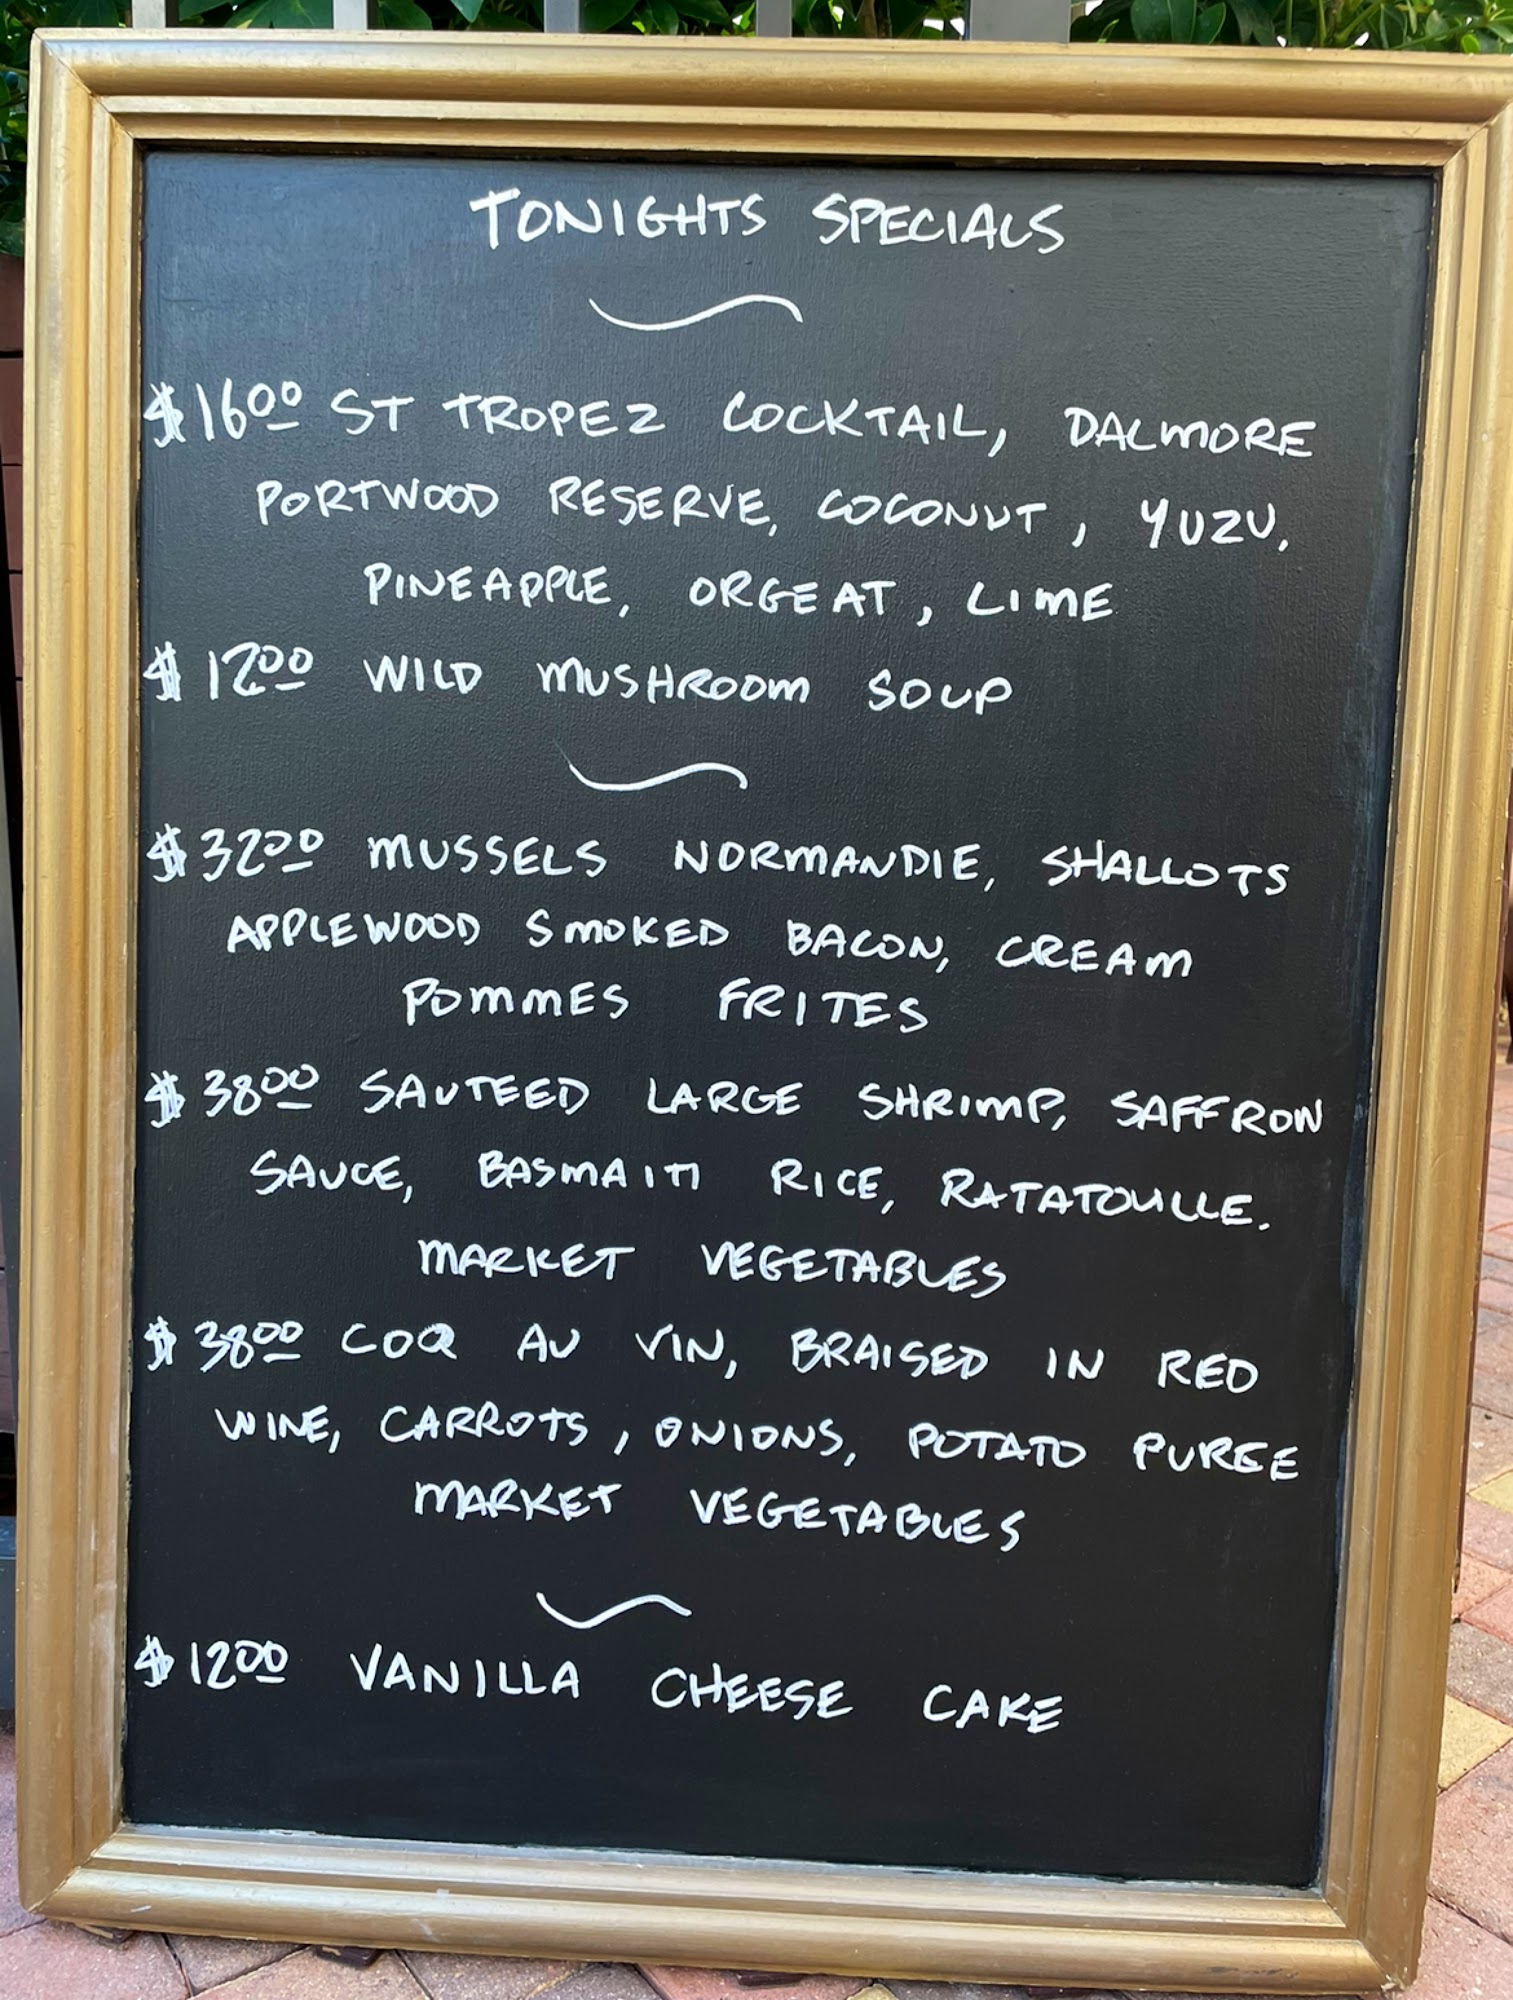 TONIGHTS SPECIALS
$16.00 ST TROPEZ COCKTAIL, DALMORE
PORTWOOD RESERVE, COCONUT, YUZU,
PINEAPPLE, ORGEAT, LIME
$12.00 WILD MUSHROOM SOUP
$32.00 MUSSELS NORMANDIE, SHALLOTS
APPLEWOOD SMOKED BACON, CREAM
POMMES FRITES
$38.00 SAUTEED LARGE SHRIMP, SAFFRON
SAUCE, BASMAITI RICE, RATATOUILLE.
MARKET VEGETABLES
$38.00 COQ AU VIN, BRAISED IN RED
WINE, CARROTS, ONIONS, POTATO PUREE
MARKET VEGETABLES
$12.00 VANILLA CHEESE CAKE